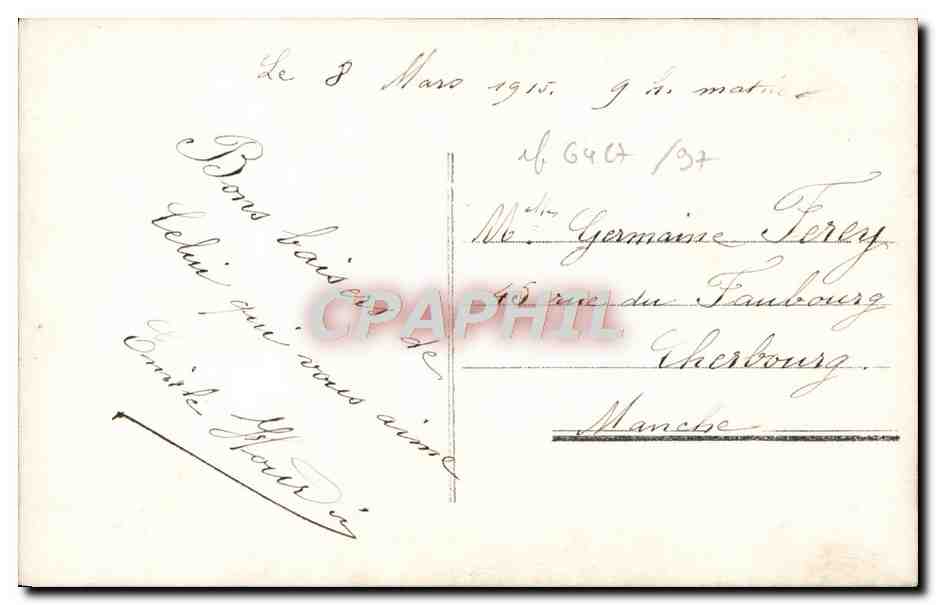 Le 8 Mars 1915. 9 h. matin
Bons baisers de
Celui qui vous aime
Emile
Melle Germaine Ferey
45 rue du Faubourg
Cherbourg.
Manche
CPAPHIL